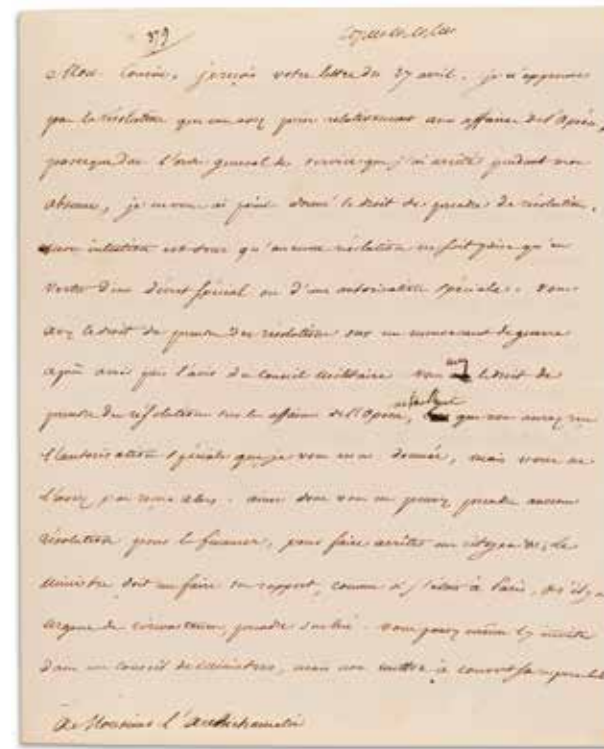 379
Mon Cousin, je reçois votre lettre du 27 avril. je n'approuve
pas la résolution que vous avez prise relativement aux affaires de l'Opéra,
parceque dans l'ordre général de service que j'ai arrêté pendant mon
absence, je ne vous ai point donné le droit de prendre de résolution.
mon intention est donc qu'aucune résolution ne soit prise qu'en
vertu d'un décret spécial ou d'une autorisation spéciale. vous
avez le droit de prendre des résolutions sur un mouvement de guerre
après avoir pris l'avis du Conseil militaire vous avez le droit de
prendre des résolutions sur les affaires de l'Opéra, que vous aurez vu
l'autorisation spéciale que je vous en ai donnée, mais vous ne
l'avez pas sans cela. ainsi donc vous ne pouvez prendre aucune
résolution pour les finances, pour faire arrêter un citoyen &c. Le
Ministre doit me faire son rapport, comme si j'étais à Paris, et s'il y a
urgence de circonstance, prendre sur lui. vous pouvez même l'y inviter
dans un conseil de Ministres, mais non mettre à couvert sa
A Monsieur l'Archichancelier